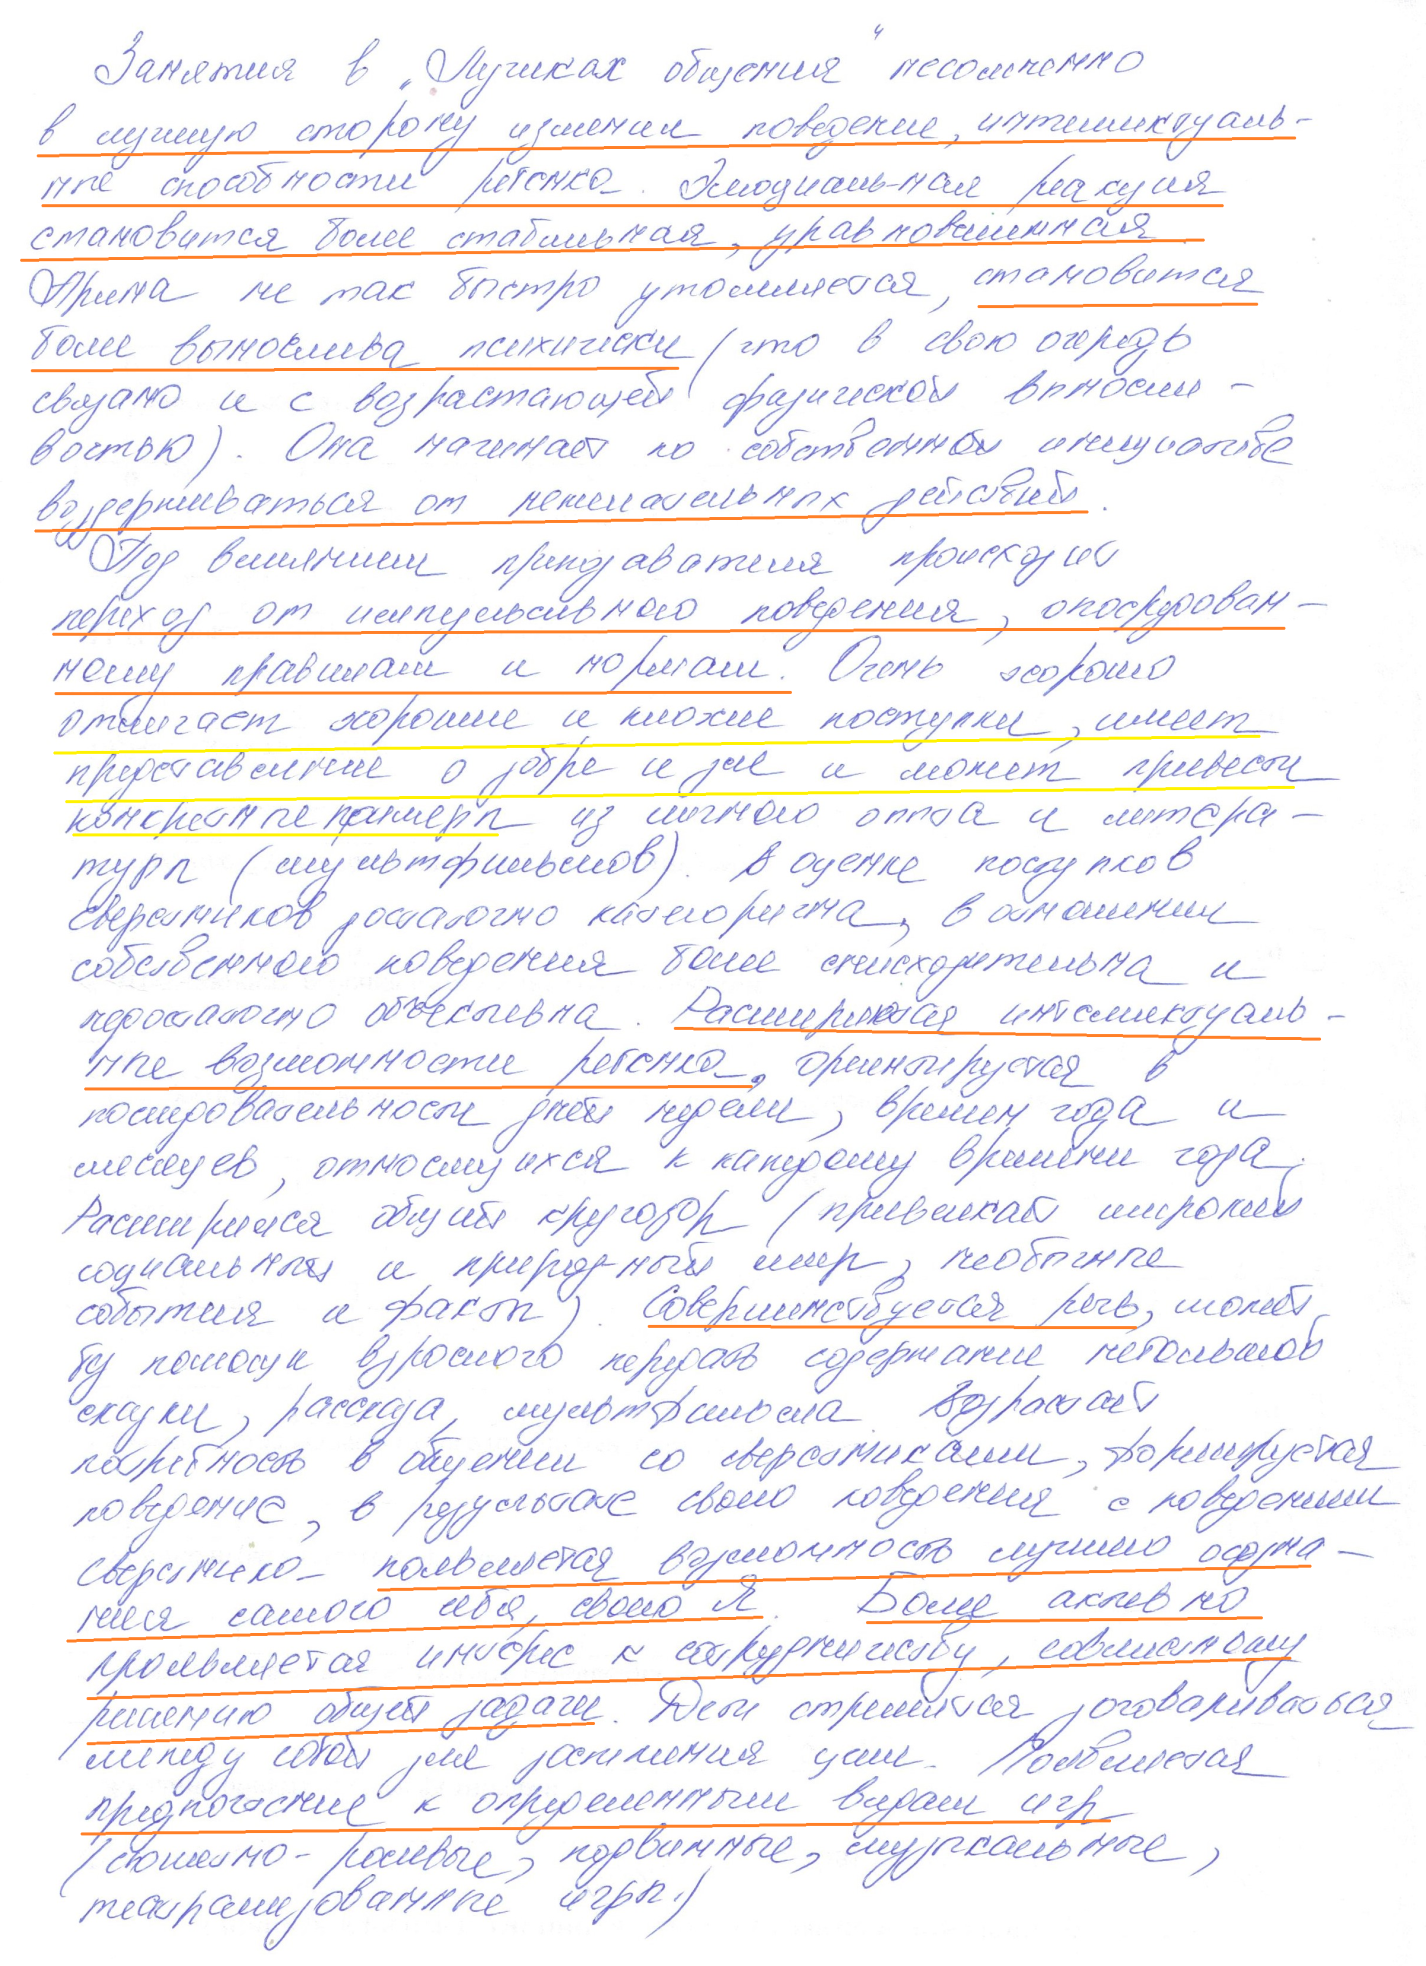 Занятия в „Лучиках общения“ несомненно
в лучшую сторону изменил поведение, интеллектуаль-
ные способности ребенка. Эмоциональ-ная реакция
становится более стабильная, уравновешенная.
Арина не так быстро утомляется, становится
более вынослива психически (что в свою очередь
связано и с возрастающей физической выносли-
востью). Она начинает по собственной инициативе
воздерживаться от нежелательных действий.
Под влиянием преподавателя происходит
переход от импульсивного поведения, опосредован-
ному правилам и нормам. Очень хорошо
отличает хорошие и плохие поступки, имеет
представление о добре и зле и может привести
конкретные примеры из личного опыта и литера-
туры (мультфильмов). В оценке поступков
сверстников достаточно категорична, в отношении
собственного поведения более снисходительна и
недостаточно объективна. Расширяются интеллектуаль-
ные возможности ребенка, ориентируется в
последовательности дней недели, времен года и
месяцев, относящихся к каждому времени года.
Расширился общий кругозор (привлекает широкий
социальный и природ-ный мир, необычные
события и факты). Совершенствуется речь, может
без помощи взрослого передать содержание небольшой
сказки, рассказа, мультфильма. Возрастает
потребность в общении со сверстниками, формируется
поведение, в результате своего поведения с поведением
сверстника- появляется возможность лучшего осозна-
ния самого себя, своего Я. Более активно
проявляется интерес к сотрудничеству, совместному
решению общей задачи. Дети стремятся договариваться
между собой для достижения цели. Появляется
предпочтение к определенным видам игр
(сюжетно-ролевые, подвижные, музыкальные,
театрализованные игры.)